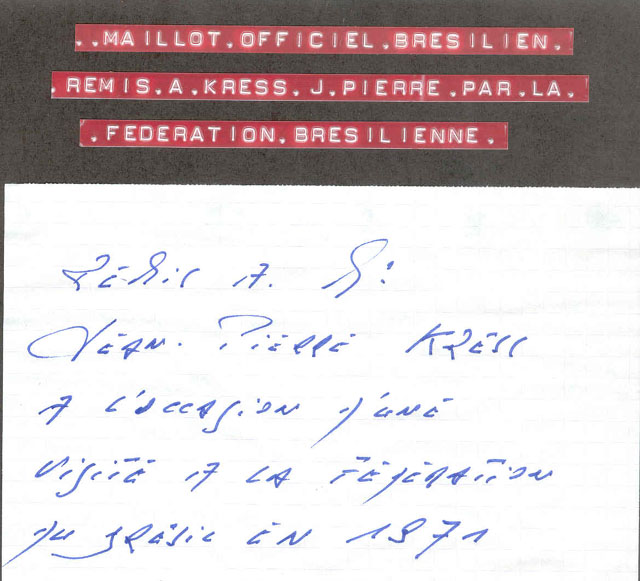 ..MAILLOT.OFFICIEL.BRESILIEN.
.REMIS.A.KRESS.J.PIERRE.PAR.LA.
.FEDERATION.BRESILIENNE.
Remis A. Mr
Jean. Pierre Kress
A l'occasion d'une
visite A la Fédération
du Brésil en 1971